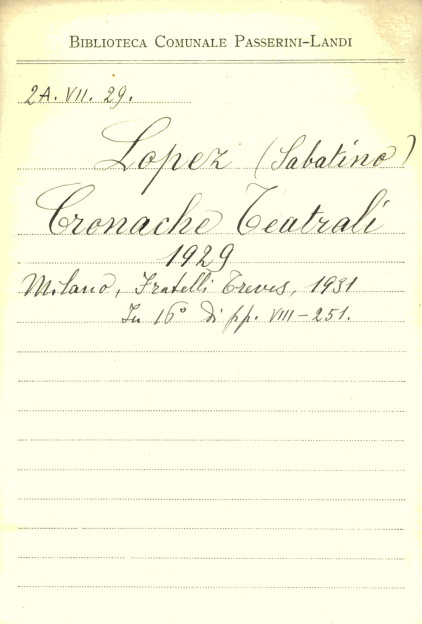 BIBLIOTECA COMUNALE PASSERINI-LANDI
2A. VII. 29.
Lopez (Sabatino)
Cronache Teatrali
1929
Milano, Fratelli Treves, 1931
In 16° di pp. VIII-251.